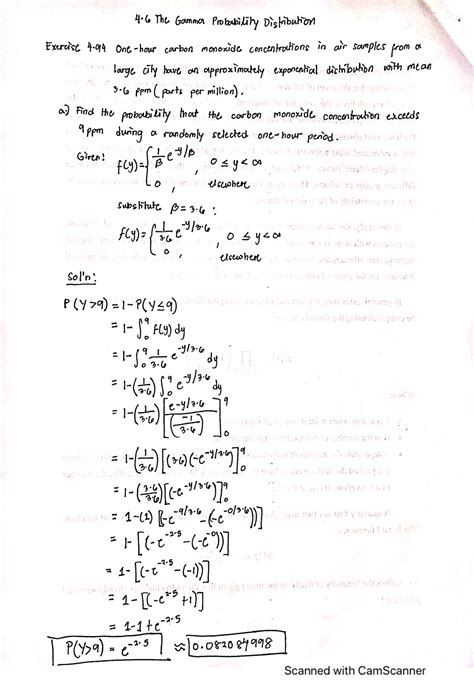 4.6 The Gamma Probability Distribution
Exercise 4.94 One-hour carbon monoxide concentrations in air samples from a
large city have an approximately exponential distribution with mean
3.6 ppm (parts per million).
a) Find the probability that the carbon monoxide concentration exceeds
9 ppm during a randomly selected one-hour period.
Given: f(y) = { 1/β e^{-y/β}, 0 ≤ y < ∞
0, elsewhere
substitute β = 3.6 :
f(y) = { 1/3.6 e^{-y/3.6}, 0 ≤ y < ∞
0, elsewhere
Sol'n:
P(Y>9) = 1 - P(Y≤9)
= 1 - ∫_0^9 f(y) dy
= 1 - ∫_0^9 1/3.6 e^{-y/3.6} dy
= 1 - (1/3.6) ∫_0^9 e^{-y/3.6} dy
= 1 - (1/3.6) [e^{-y/3.6} / (-1/3.6)]_0^9
= 1 - (1/3.6) [(3.6)(-e^{-y/3.6})]_0^9
= 1 - (3.6/3.6) [(-e^{-y/3.6})]_0^9
= 1 - (1) [-e^{-9/3.6} - (-e^{-0/3.6})]
= 1 - [(-e^{-2.5} - (-e^{-0}))]
= 1 - [(-e^{-2.5} - (-1))]
= 1 - [(-e^{-2.5} + 1)]
= 1 - 1 + e^{-2.5}
P(Y>9) = e^{-2.5} ≈ 0.082084998
Scanned with CamScanner